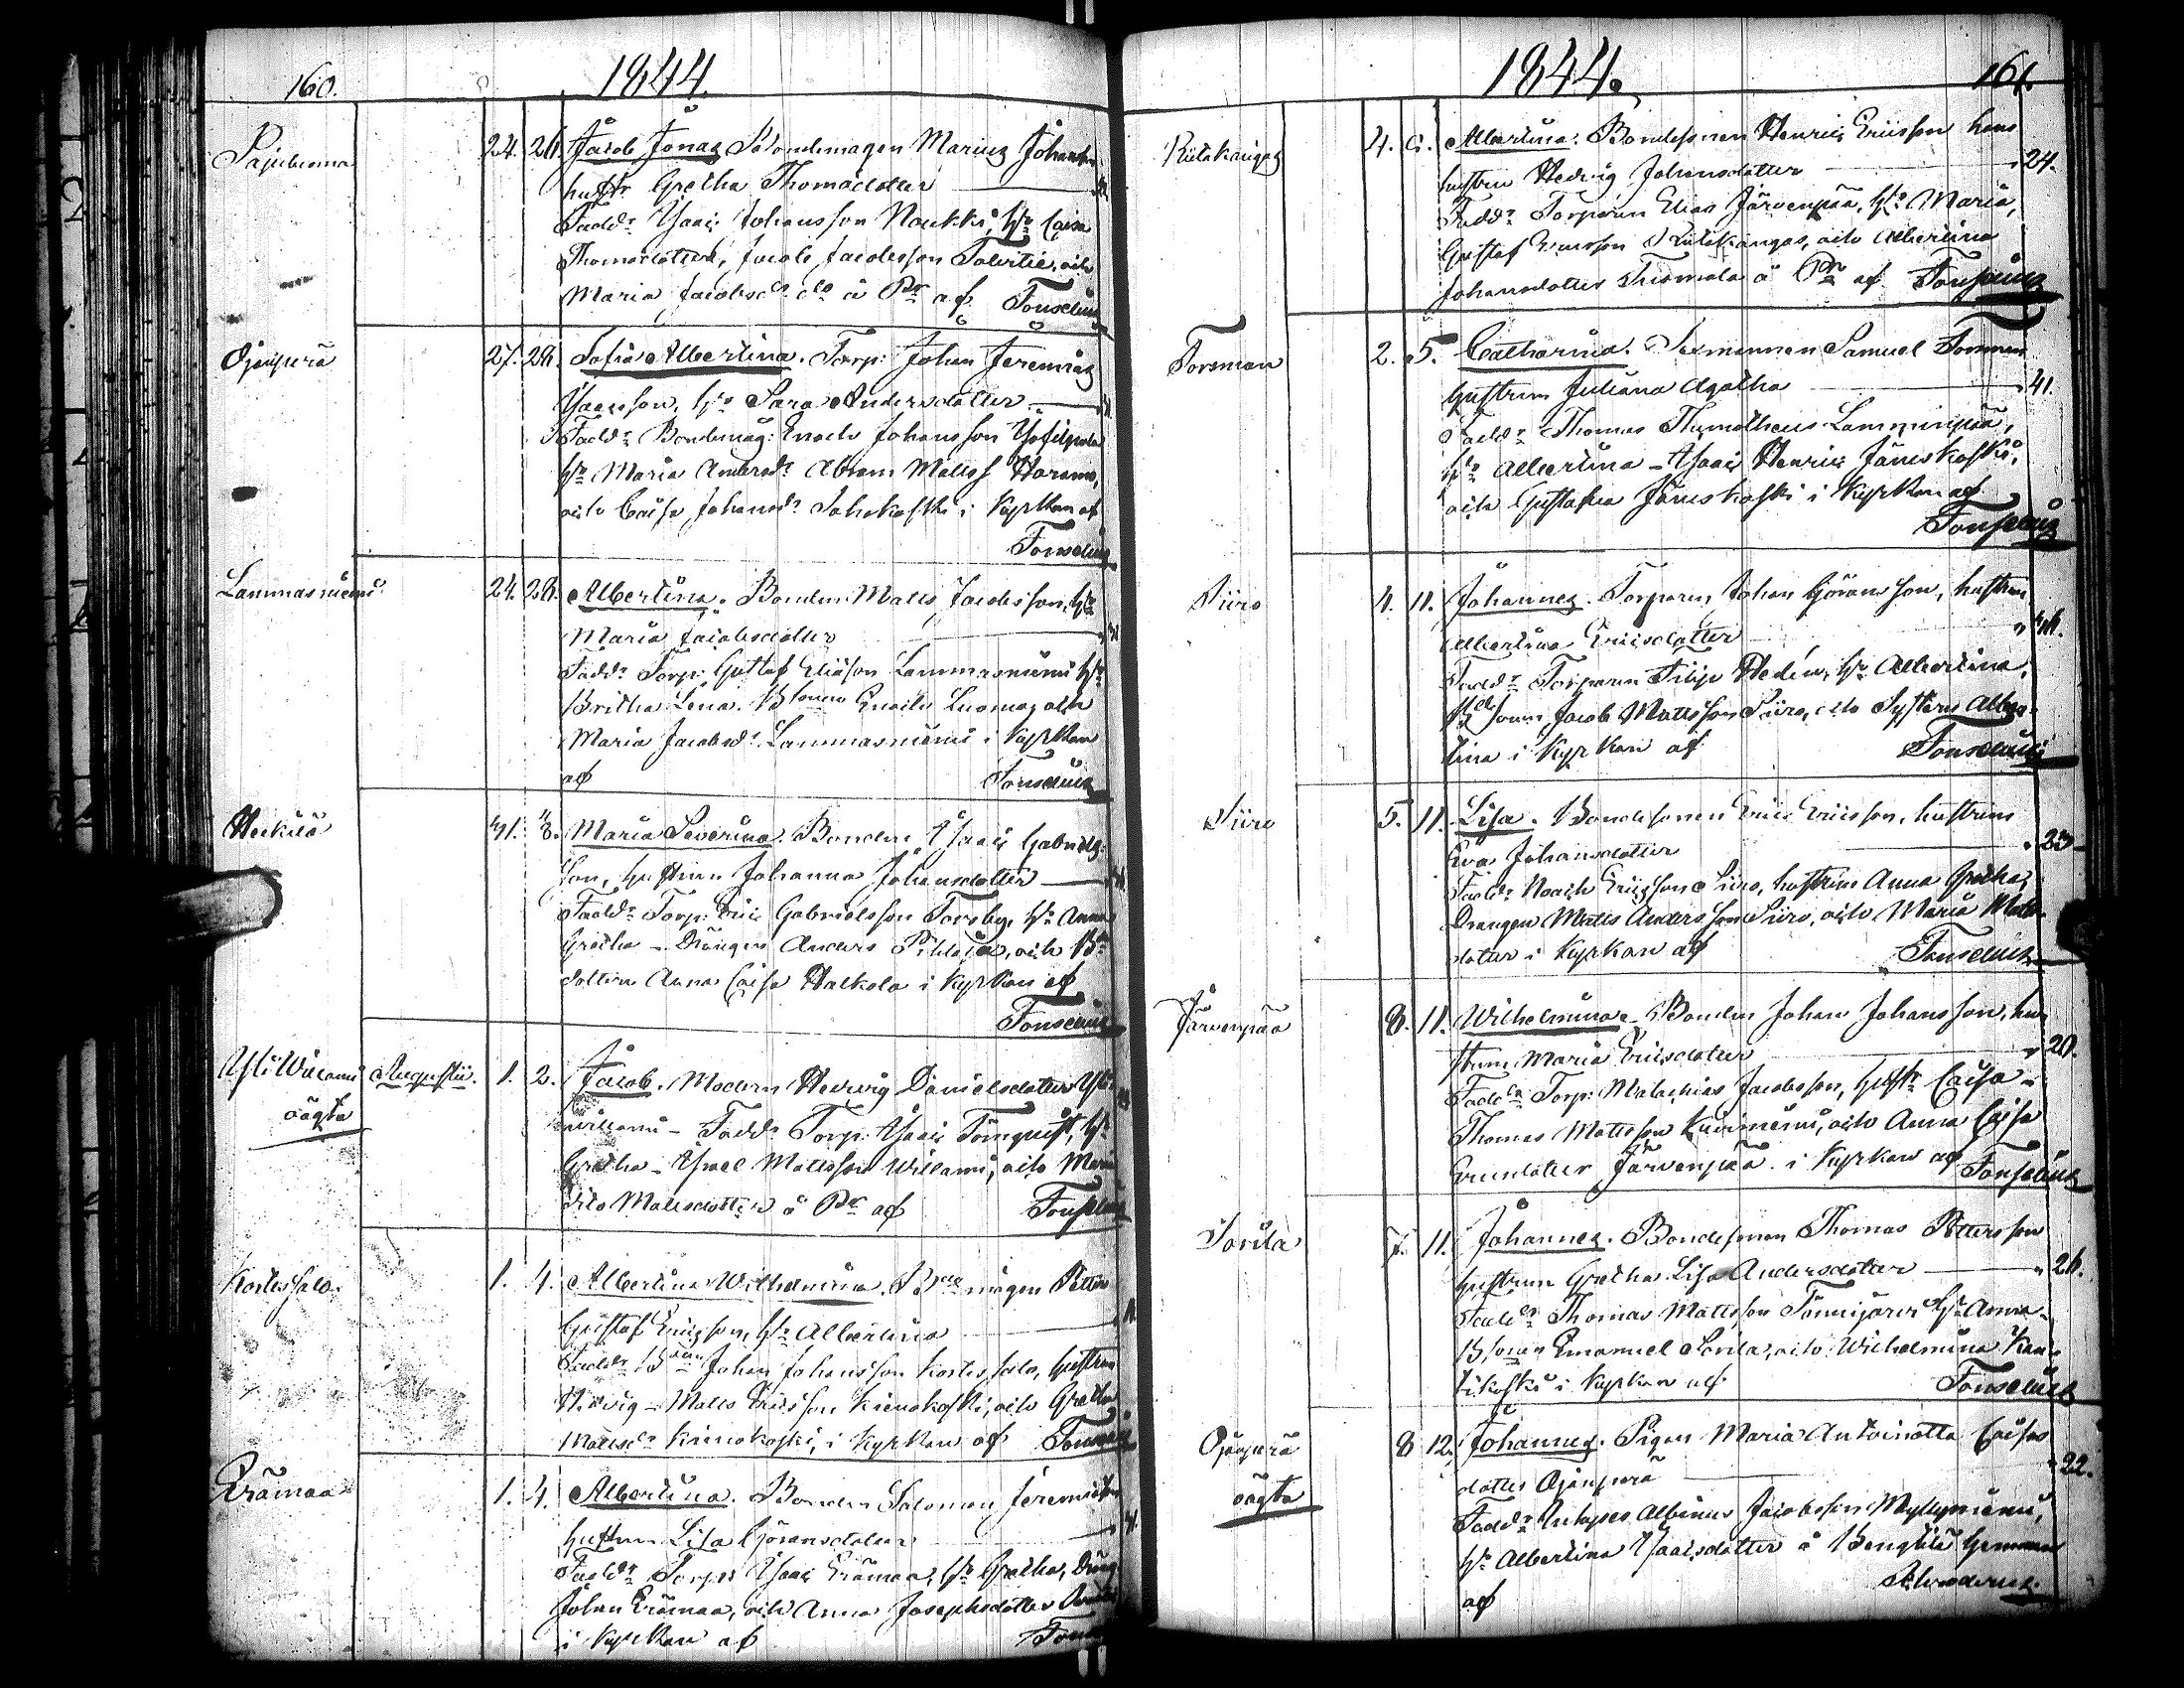 160. 1844.
Pajuluoma 24. 26. Jacob Jonas Bondemågen Marius Johans
hustr Gretha Thomædotter
Fadd: Isaac Johansson Naukki, H:u Caisa
Thomædotter, Jacob Jacobsson, och
Maria Jacobsd:r d:o å Pr af Fonselius
Ojanperä 27. 28. Sofia Albertina. Torp: Johan Jeremias
Isacsson, H:u Sara Andersdotter
Fadd:r Bondemåg: Enoch Johansson
H:u Maria Andersd:r Abram Matts Harama,
och Caisa Johansd:r Sahakoski i Kyrkan af
Fonselius
Lammasniemi 24. 28. Albertina. Bonden Matts Jacobsson, H:u
Maria Jacobsdotter
Fadd:r Torp: Gustaf Eliasson Lammasniemi H:u
Britha Lena. B sonen Enoch Luoma och
Maria Jacobsd:r Lammasniemi i Kyrkan
af Fonselius
Heikilä 31. 3. Maria Severina. Bonden Isaac Gabriels
son, hustrun Johanna Johansdotter
Fadd:r Torp: Eric Gabrielsson Forsby, H:u Anna
Gretha - Drängen Anders, och B
dottren Anna Caisa Halkola i Kyrkan af
Fonselius
Yli Willami Augusti. 1. 2. Jacob. Modern Hedwig Danielsdotter Yli
oägta willami - Fadd:r Torp: Isaac Törnquist, H:u
Gretha - Israel Mattsson Willami, och Maria
Mattsdotter å Pr af Fonselius
Kortessalo 1. 4. Albertina Wilhelmina. B mågen Petter
Gustaf Ericsson, H:u Albertina
Fadd:r B Johan Johansson Kortessalo, hustrun
Hedvig - Matts Ericsson, och Gretha
Mattsd:r i Kyrkan af Fonselius
Erämaa 1. 4. Albertina. Bonden Salomon Jeremiasson
hustrun Lisa Göransdotter
Fadd:r Torp: Isaac Erämaa, H:u Gretha, Dräng
Johan Erämaa, och Anna Josephsdotter
i Kyrkan af Fons
1844. 161.
Riitakangas 4. Albertina. Bondesonen Henric Ericsson hans
hustru Hedvig Johansdotter 24.
Fadd:r Torparen Elias Järvenpää, H:u Maria,
Gustaf Ericsson Riitakangas, och Albertina
Johansdotter Tuomala å Pr af Fonselius
Forsman 2. 5. Catharina. Sexmannen Samuel Forsman
hustrun Juliana Agatha 41.
Fadd:r Thomas Thimotheus Lamminpää,
H:u Albertina - Isaac Henric Jäniskoski,
och Gustafva Jäniskoski i Kyrkan af
Fonselius
Siiro 4. 11. Johannes. Torparen Johan Göransson, hustrun
Albertina Ericsdotter
Fadd:r Torparen Filip Hedén, H:u Albertina,
B sonen Jacob Mattsson Siiro, och Systern Alber
tina i Kyrkan af Fonselius
Siiro 5. 11. Lisa. Bondesonen Eric Ericsson, hustrun
Eva Johansdotter 23
Fadd:r Noach Ericsson Siiro, hustrun Anna Gretha,
Drängen Matts Andersson Siiro, och Maria Matts
dotter i Kyrkan af Fonselius
Järvenpää 8. 11. Wilhelmina. Bonden Johan Johansson, hu
strun Maria Ericsdotter 20.
Fadd:r Torp: Malachias Jacobsson, hustr Caisa -
Thomas Mattsson, och Anna Caisa
Ericsdotter Järvenpää i Kyrkan af Fonselius
Sorila 7. 11. Johannes. Bondesonen Thomas Pettersson
hustrun Gretha Lisa Andersdotter 26.
Fadd:r Thomas Mattsson, H:u Anna -
B sonen Emanuel Sorila, och Wilhelmina Kan
i Kyrkan af Fonselius
Ojanperä 8 12. Johannes. Pigan Maria Antoinetta Caisas
oägta dotter Ojanperä 22.
Fadd:r Inhyses Albinus Jacobsson Myllyniemi,
H:u Albertina Isaacsdotter å Bengtilä hemman
af